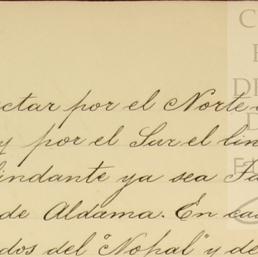 ctar por el Norte
y por el Sur el lin
lindante ya sea
de Aldama. En
dos del "Nopal" y de